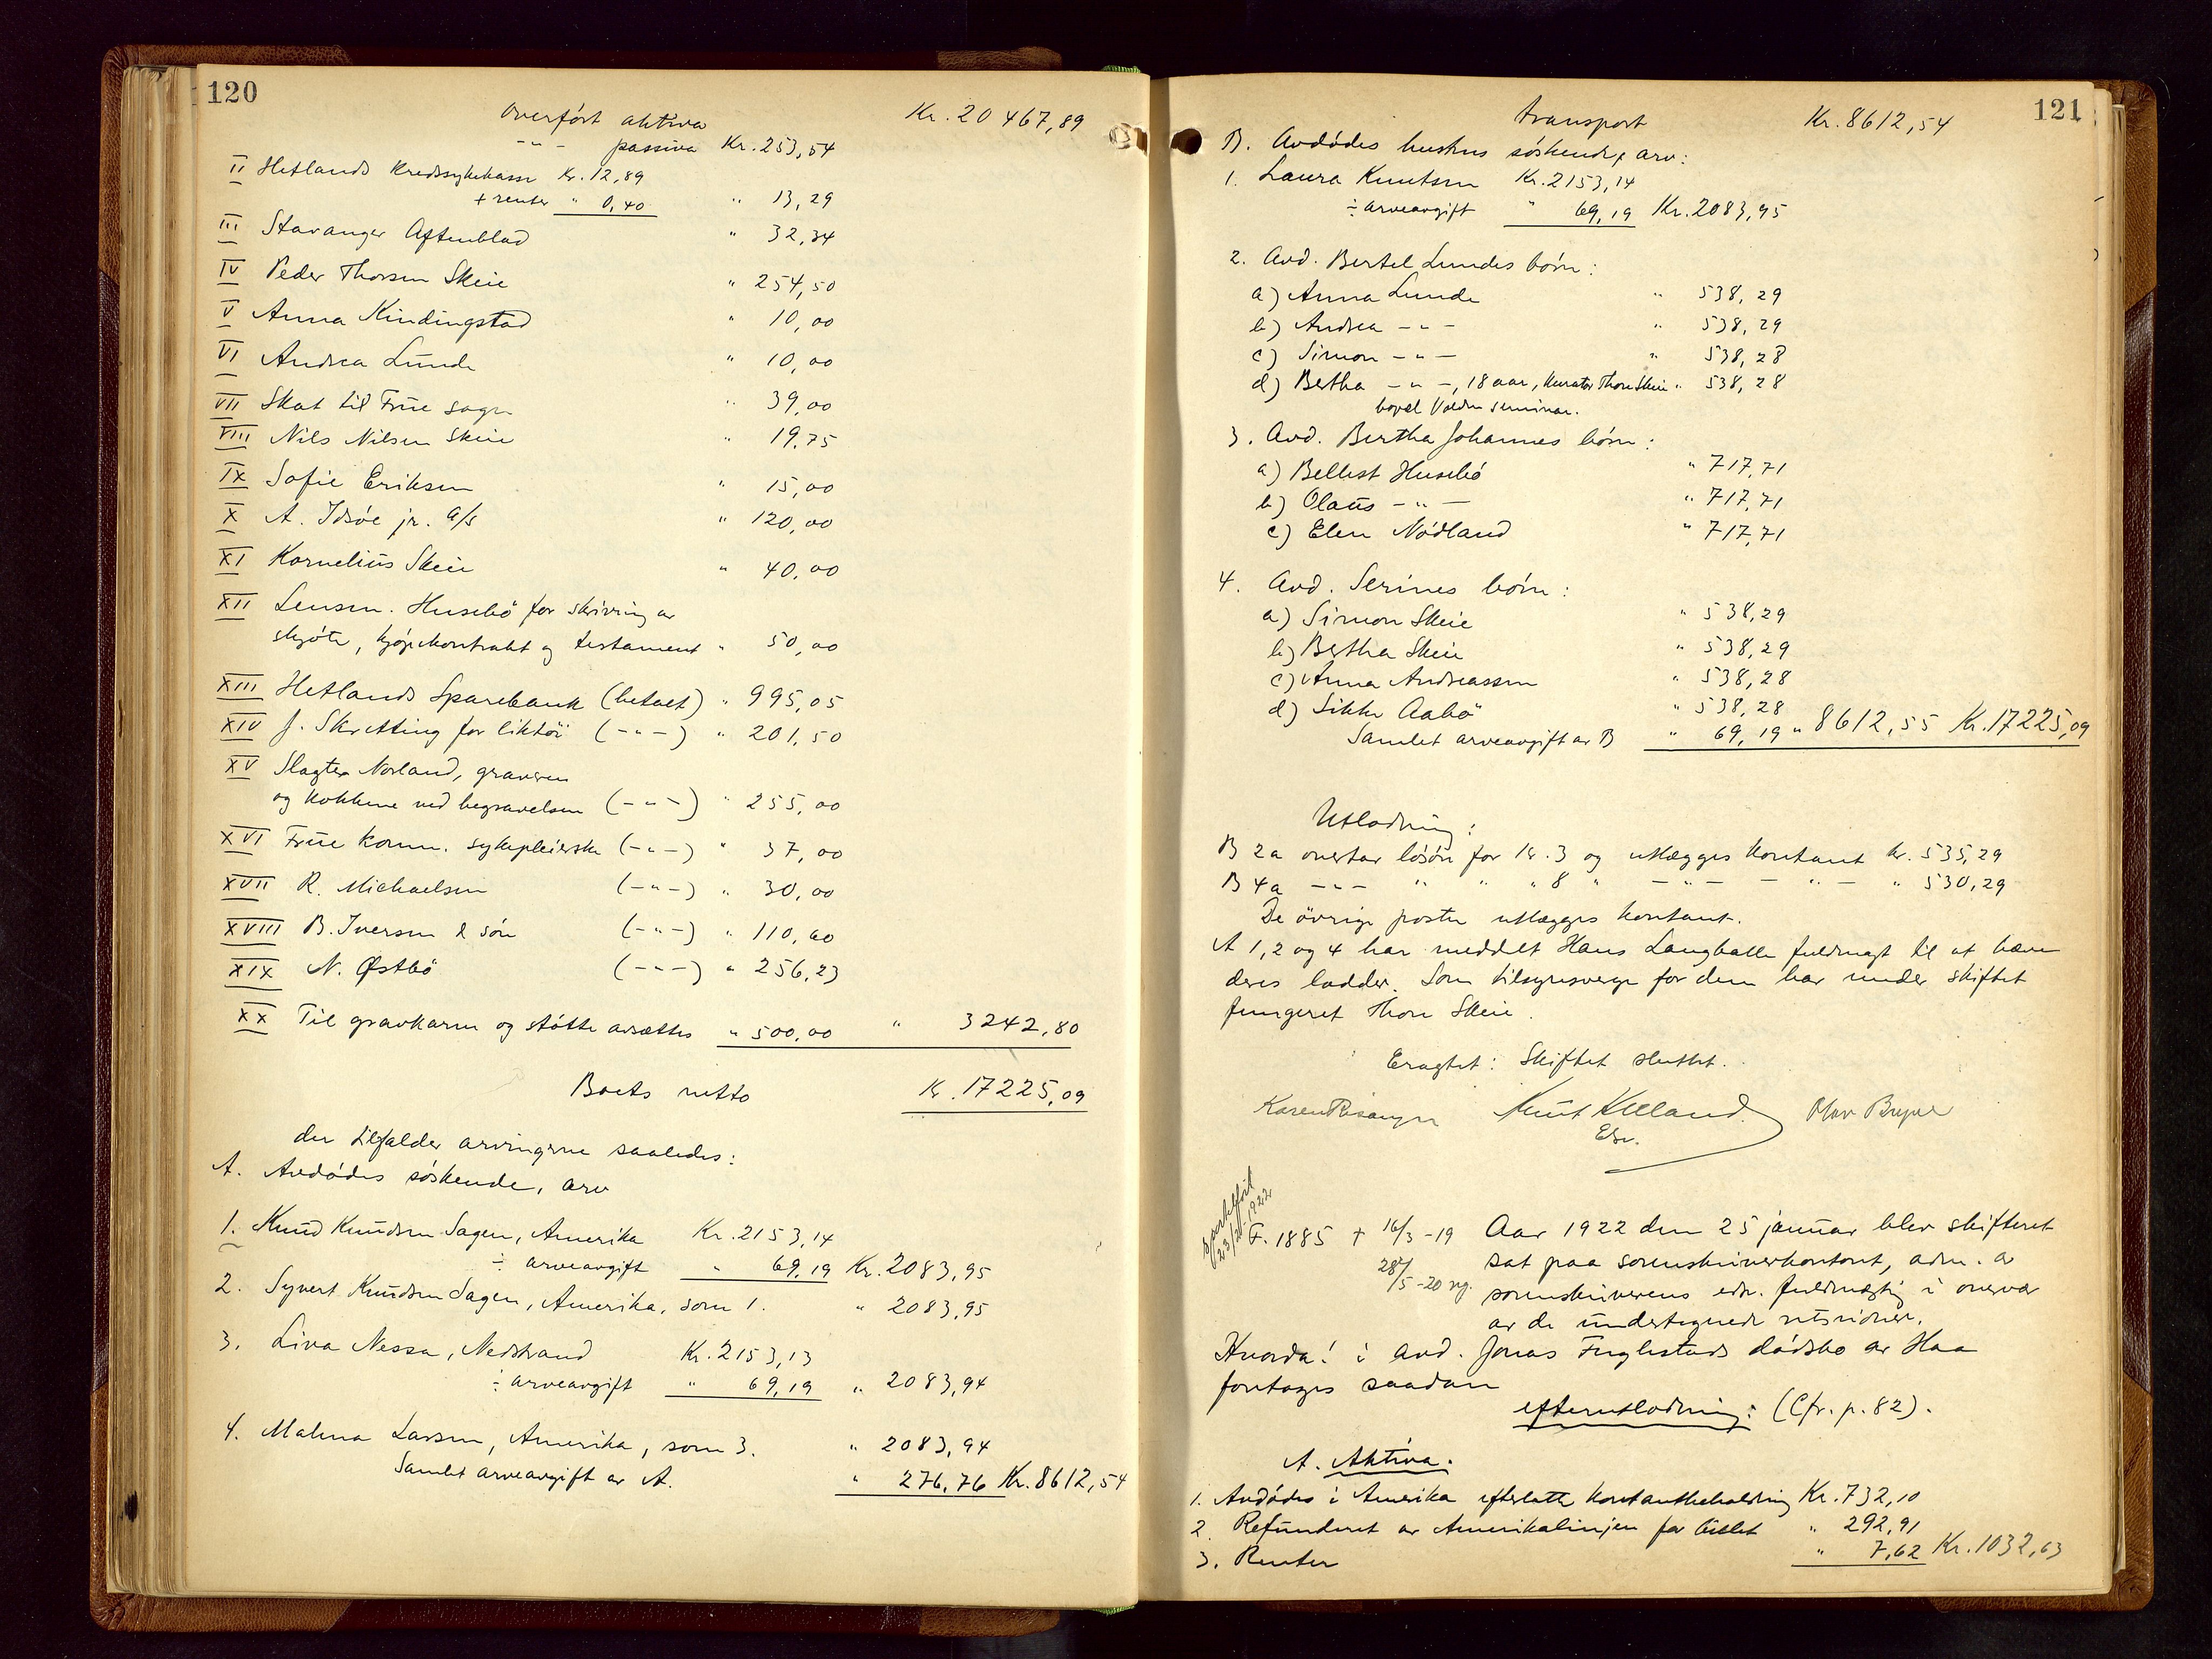 120
Overført aktiva Kr. 20 467,89
-"- passiva Kr. 253,54
II Hetlands Kredssykekasse Kr. 12,89
+ renter " 0,40 " 13,29
III Stavanger Aftenblad " 32,34
IV Peder Thorsen Skeie " 254,50
V Anna Kindingstad " 10,00
VI Andrea Lunde " 10,00
VII Skat til Frue sogn " 39,00
VIII Nils Nilsen Skeie " 19,75
IX Sofie Eriksen " 15,00
X A. Idsøe jr. A/s " 120,00
XI Kornelius Skeie " 40,00
XII Lensm. Husebø for skrivning av
skjøte, kjøpekontrakt og testament " 50,00
XIII Hetlands Sparebank (betalt) " 995,05
XIV J. Skretting for liktøi (-"-) " 201,50
XV Slagter Norland, graveren
og kokkene ved begravelsen (-"-) " 255,00
XVI Frue komm. sykepleierske (-"-) " 37,00
XVII R. Michaelsen (-"-) " 30,00
XVIII B. Iversen & søn (-"-) " 110,60
XIX N. Østbø (-"-) " 256,23
XX Til gravkarm og støtte avsættes " 500,00 " 3242,80
Boets netto Kr. 17225,09
der tilfalder arvingerne saaledes:
A. Avdødes søskende, arv
1. Knud Knudsen Sagen, Amerika Kr. 2153,14
÷ arveavgift " 69,19 Kr. 2083,95
2. Syvert Knudsen Sagen, Amerika, som 1. " 2083,95
3. Liva Nessa, Nedstrand Kr. 2153,13
÷ arveavgift " 69,19 " 2083,94
4. Malena Larsen, Amerika, som 3. " 2083,94
Samlet arveavgift av A. " 276,76 Kr. 8612,54
121
transport Kr. 8612,54
B. Avdødes hustrus søskende, arv:
1. Laura Knutsen Kr. 2153,14
÷ arveavgift " 69,19 Kr. 2083,95
2. Avd. Bertel Lundes børn:
a) Anna Lunde " 538,29
b) Andrea -"- " 538,29
c) Simon -"- " 538,28
d) Bertha -"-, 18 aar, kurator Thore Skeie " 538,28
bopæl Volden seminar.
3. Avd. Bertha Johannes børn:
a) Bellest Husebø " 717,71
b) Olaus -"- " 717,71
c) Elen Nødland " 717,71
4. Avd. Serines børn:
a) Simon Skeie " 538,29
b) Bertha Skeie " 538,29
c) Anna Andreassen " 538,28
d) Sikke Aabø " 538,28
Samlet arveavgift av B " 69,19 " 8612,55 Kr. 17225,09
Utlodning:
B 2a overtar løsøre for kr. 3 og utlægges kontant kr. 535,29
B 4a -"- " " " 8 " -"- -"- " 530,29
De øvrige poster utlægges kontant.
A 1, 2 og 4 har meddelt Hans Langballe fuldmagt til at hæve
deres lodder. Som tilsynsverge for dem har under skiftet
fungeret Thore Skeie.
Eragtet: Skiftet sluttet.
Knut Kielland
Ebr.
F. 1885 + 16/3 -19 Aar 1922 den 25 januar blev skifteret
28/5 -20 rg. sat paa sorenskriverkontoret, adm. av
sorenskriverens edsv. fuldmægtig i overvær
av de undertegnede retsvidner.
Hvorda: i avd. Jonas Fuglestads dødsbo av Haa
foretages saadan
efterutlodning: (Cfr. p. 82).
A. Aktiva.
1. Avdødes i Amerika efterlatte kontantbeholdning Kr. 732,10
2. Refunderet av Amerikalinjen for billet " 292,91
3. Renter " 7,62 Kr. 1032,63